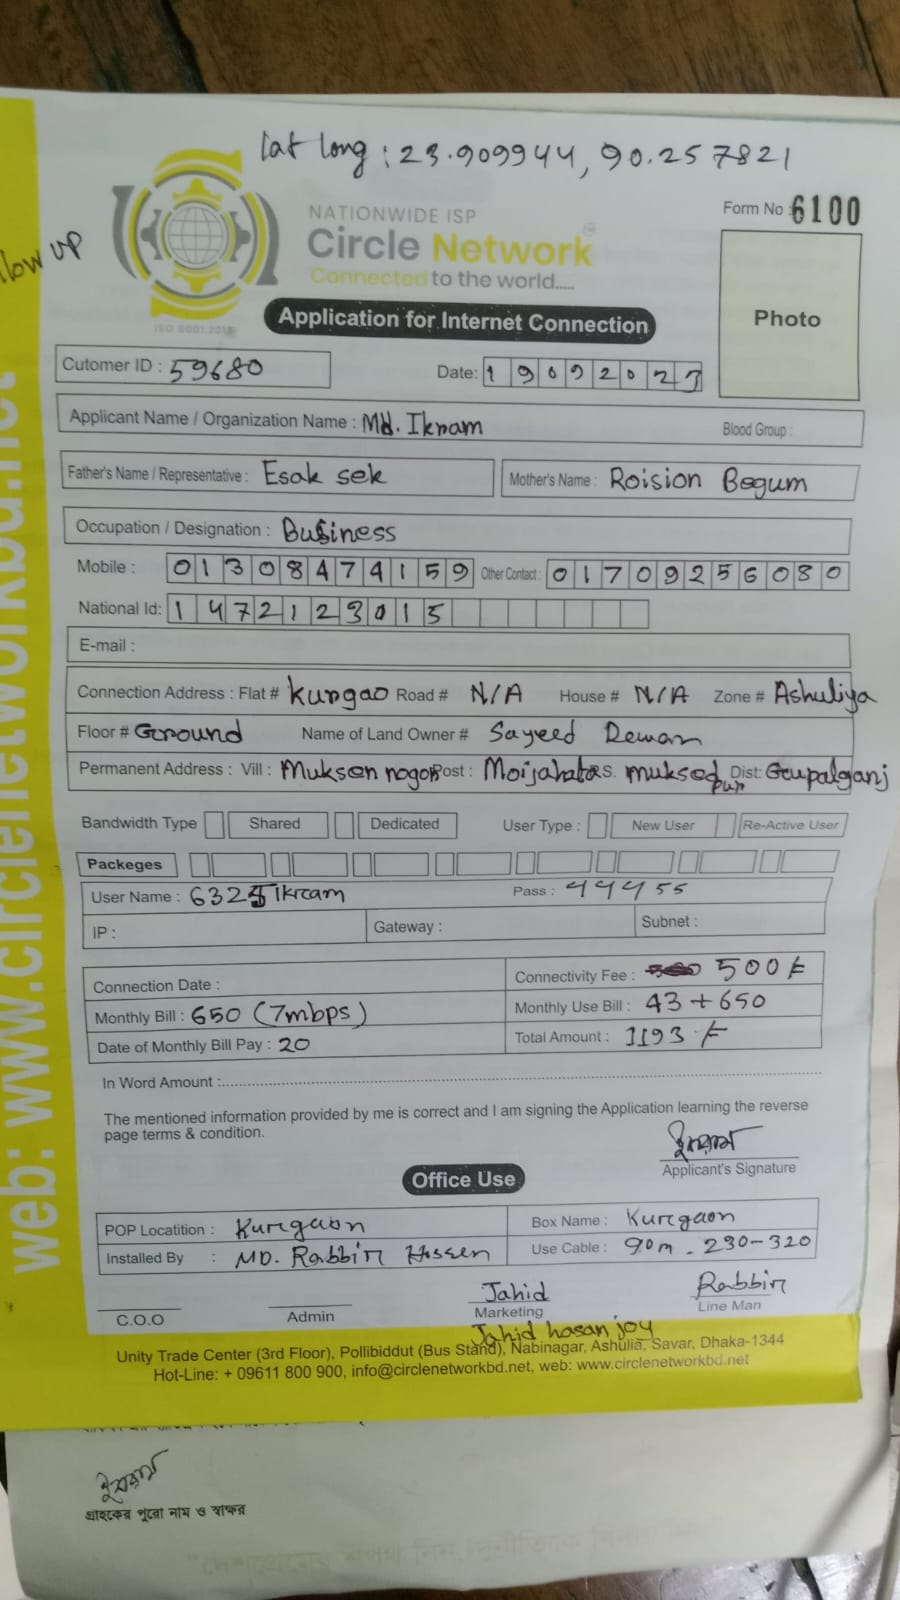 lat long : 23.909944, 90.257821
NATIONWIDE ISP
Form No : 6100
Circle Network
Connected to the world.....
low up
ISO 9001:2015
Application for Internet Connection
Photo
Cutomer ID : 59680
Date: 19092023
Applicant Name / Organization Name : Md. Ikram
Blood Group :
Father's Name / Representative : Esak sek
Mother's Name : Roision Begum
Occupation / Designation : Business
Mobile : 01308474159 Other Contact : 01709256080
National Id: 1472123015
E-mail :
Connection Address : Flat # kurgao Road # N/A House # N/A Zone # Ashuliya
Floor # Ground Name of Land Owner # Sayeed Dewan
Permanent Address : Vill : Post : P.S. muksedpur Dist: Goupalganj
Bandwidth Type Shared Dedicated User Type : New User Re-Active User
Packeges
User Name : Ikram Pass : 444455
IP : Gateway : Subnet :
Connection Date : Connectivity Fee : 500/=
Monthly Bill : 650 (7mbps) Monthly Use Bill : 43 + 650
Date of Monthly Bill Pay : 20 Total Amount : 1193 /=
In Word Amount :
The mentioned information provided by me is correct and I am signing the Application learning the reverse
page terms & condition.
Applicant's Signature
Office Use
POP Locatition : Kurgaon Box Name : Kurgaon
Installed By : MD. Rabbir Hossen Use Cable : 90m - 230-320
Jahid Rabbir
C.O.O Admin Marketing Line Man
Jahid hasan joy
Unity Trade Center (3rd Floor), Pollibiddut (Bus Stand), Nabinagar, Ashulia, Savar, Dhaka-1344
Hot-Line: + 09611 800 900, info@circlenetworkbd.net, web: www.circlenetworkbd.net
web: www.circlenetworkbd.net
গ্রাহকের পুরো নাম ও স্বাক্ষর